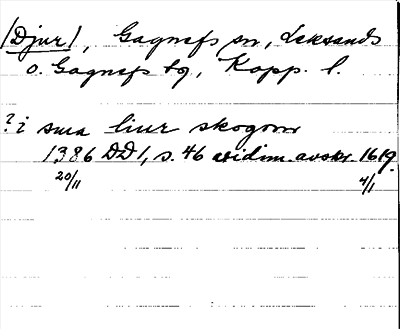 /Djur/, Gagnefs sn, Leksands
o. Gagnefs tg, Kopp. l.
? i sma liur skogom
1386 DD 1, s. 46 vidim. avskr. 1619.
20/11 4/1